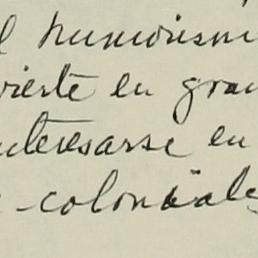 l humorism
vierte en gran
interesarse en
-coloniale